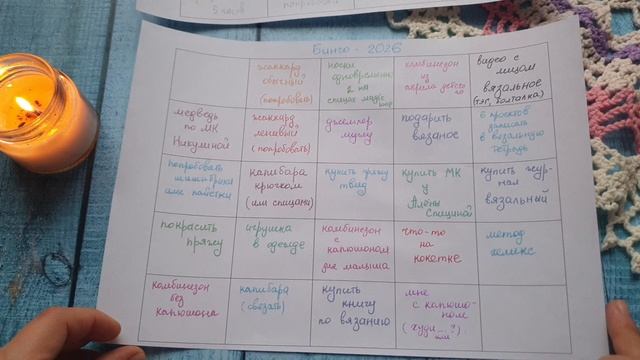 5 часов
попробовать
Бинго - 2026
жаккард
обычный
(попробовать)
носки
одновременно
2 на
спицах magic
loop
комбинезон
из
акрила детск
видео с
лицом
вязальное
(тэг, болталка)
медведь
по МК
Никулиной
жаккард
ленивый
(попробовать)
джемпер
мужу
подарить
вязаное
6 проектов
записать
в вязальную
тетрадь
попробовать
или пайетки
капибара
крючком
(или спицами)
купить пряжу
твид
купить МК
у
Алёны
Спициной
купить жур-
нал
вязальный
покрасить
пряжу
игрушка
в одежде
комбинезон
с
капюшоном
для малыша
что-то
на
кокетке
метод
хеликс
комбинезон
без
капюшона
капибара
(связать)
купить
книгу
по вязанию
мне
с капюшо-
ном
(худи